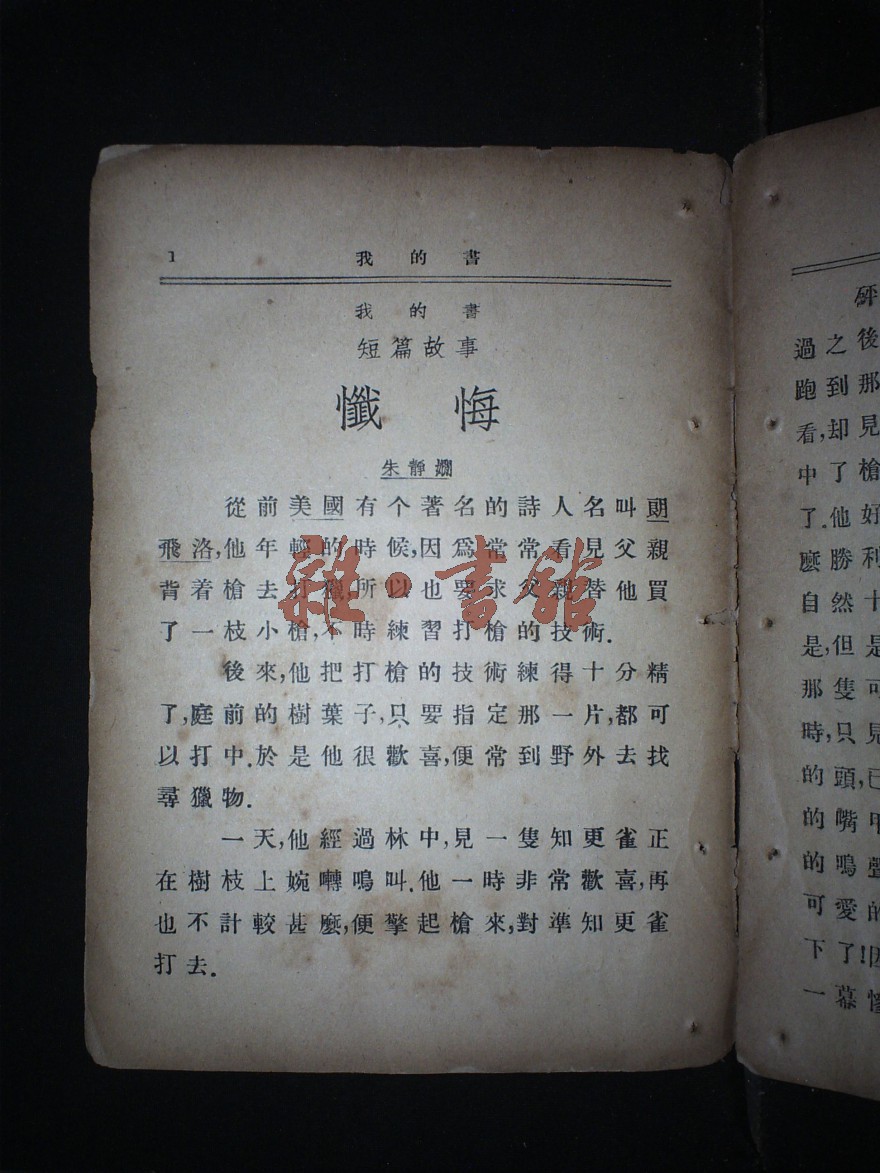 1 我的書
我的書
短篇故事
懺悔
朱靜嫻
從前美國有个著名的詩人名叫朗
飛洛,他年輕的時候,因爲常常看見父親
背着槍去打獵,所以也要求父親替他買
了一枝小槍,不時練習打槍的技術.
後來,他把打槍的技術練得十分精
了,庭前的樹葉子,只要指定那一片,都可
以打中.於是他很歡喜,便常到野外去找
尋獵物.
一天,他經過林中,見一隻知更雀正
在樹枝上婉囀鳴叫.他一時非常歡喜,再
也不計較甚麼,便擎起槍來,對準知更雀
打去.
雜·書館
砰
過之後
跑到那
看,却見
中了槍
了.他好
麼勝利
自然十
是,但是
那隻可
時,只見
的頭,已
的嘴
的鳴聲
可愛的
下了!因
一幕慘